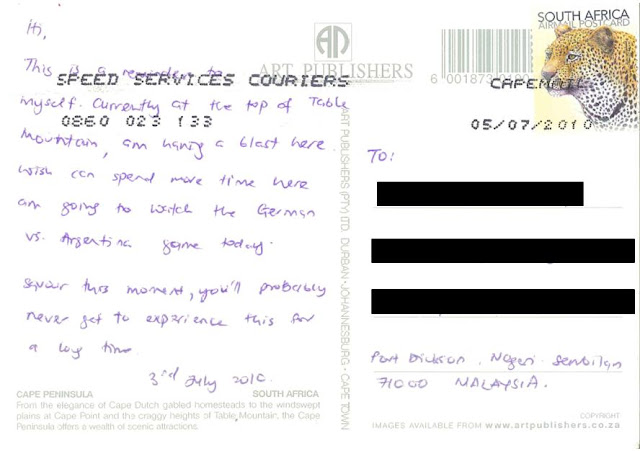 Hi,
This is a reminder to
myself. Currently at the top of Table
Mountain, am having a blast here.
wish can spend more time here
am going to watch the German
vs. Argentina game today.
Savour this moment, you'll probably
never get to experience this for
a long time.
3rd July 2010.
SPEED SERVICES COURIERS
0860 023 133
ART PUBLISHERS
ART PUBLISHERS (PTY) LTD. DURBAN • JOHANNESBURG • CAPE TOWN
CAPE PENINSULA SOUTH AFRICA
From the elegance of Cape Dutch gabled homesteads to the windswept
plains at Cape Point and the craggy heights of Table Mountain, the Cape
Peninsula offers a wealth of scenic attractions.
SOUTH AFRICA
AIRMAIL POSTCARD
6 001873
CAPEMAIL
05/07/2010
TO:
Port Dickson. Negeri Sembilan
71000 MALAYSIA.
COPYRIGHT
IMAGES AVAILABLE FROM www.artpublishers.co.za